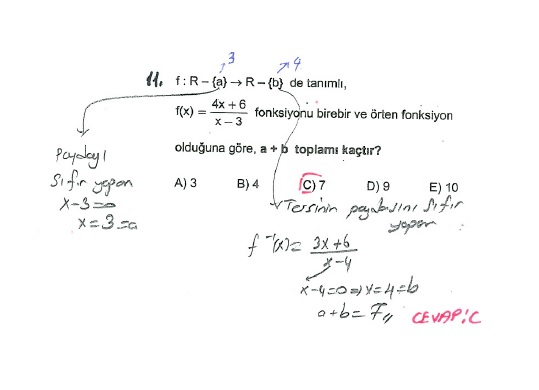 3
4
11. f : R – {a} → R – {b} de tanımlı,
f(x) = 4x + 6 / x – 3 fonksiyonu birebir ve örten fonksiyon
olduğuna göre, a + b toplamı kaçtır?
A) 3 B) 4 C) 7 D) 9 E) 10
Paydayı
sıfır yapan
x-3=0
x=3=a
Tersinin paydasını sıfır
yapan
f⁻¹(x)= 3x+6 / x-4
x-4=0⇒x=4=b
a+b=7//
CEVAP:C